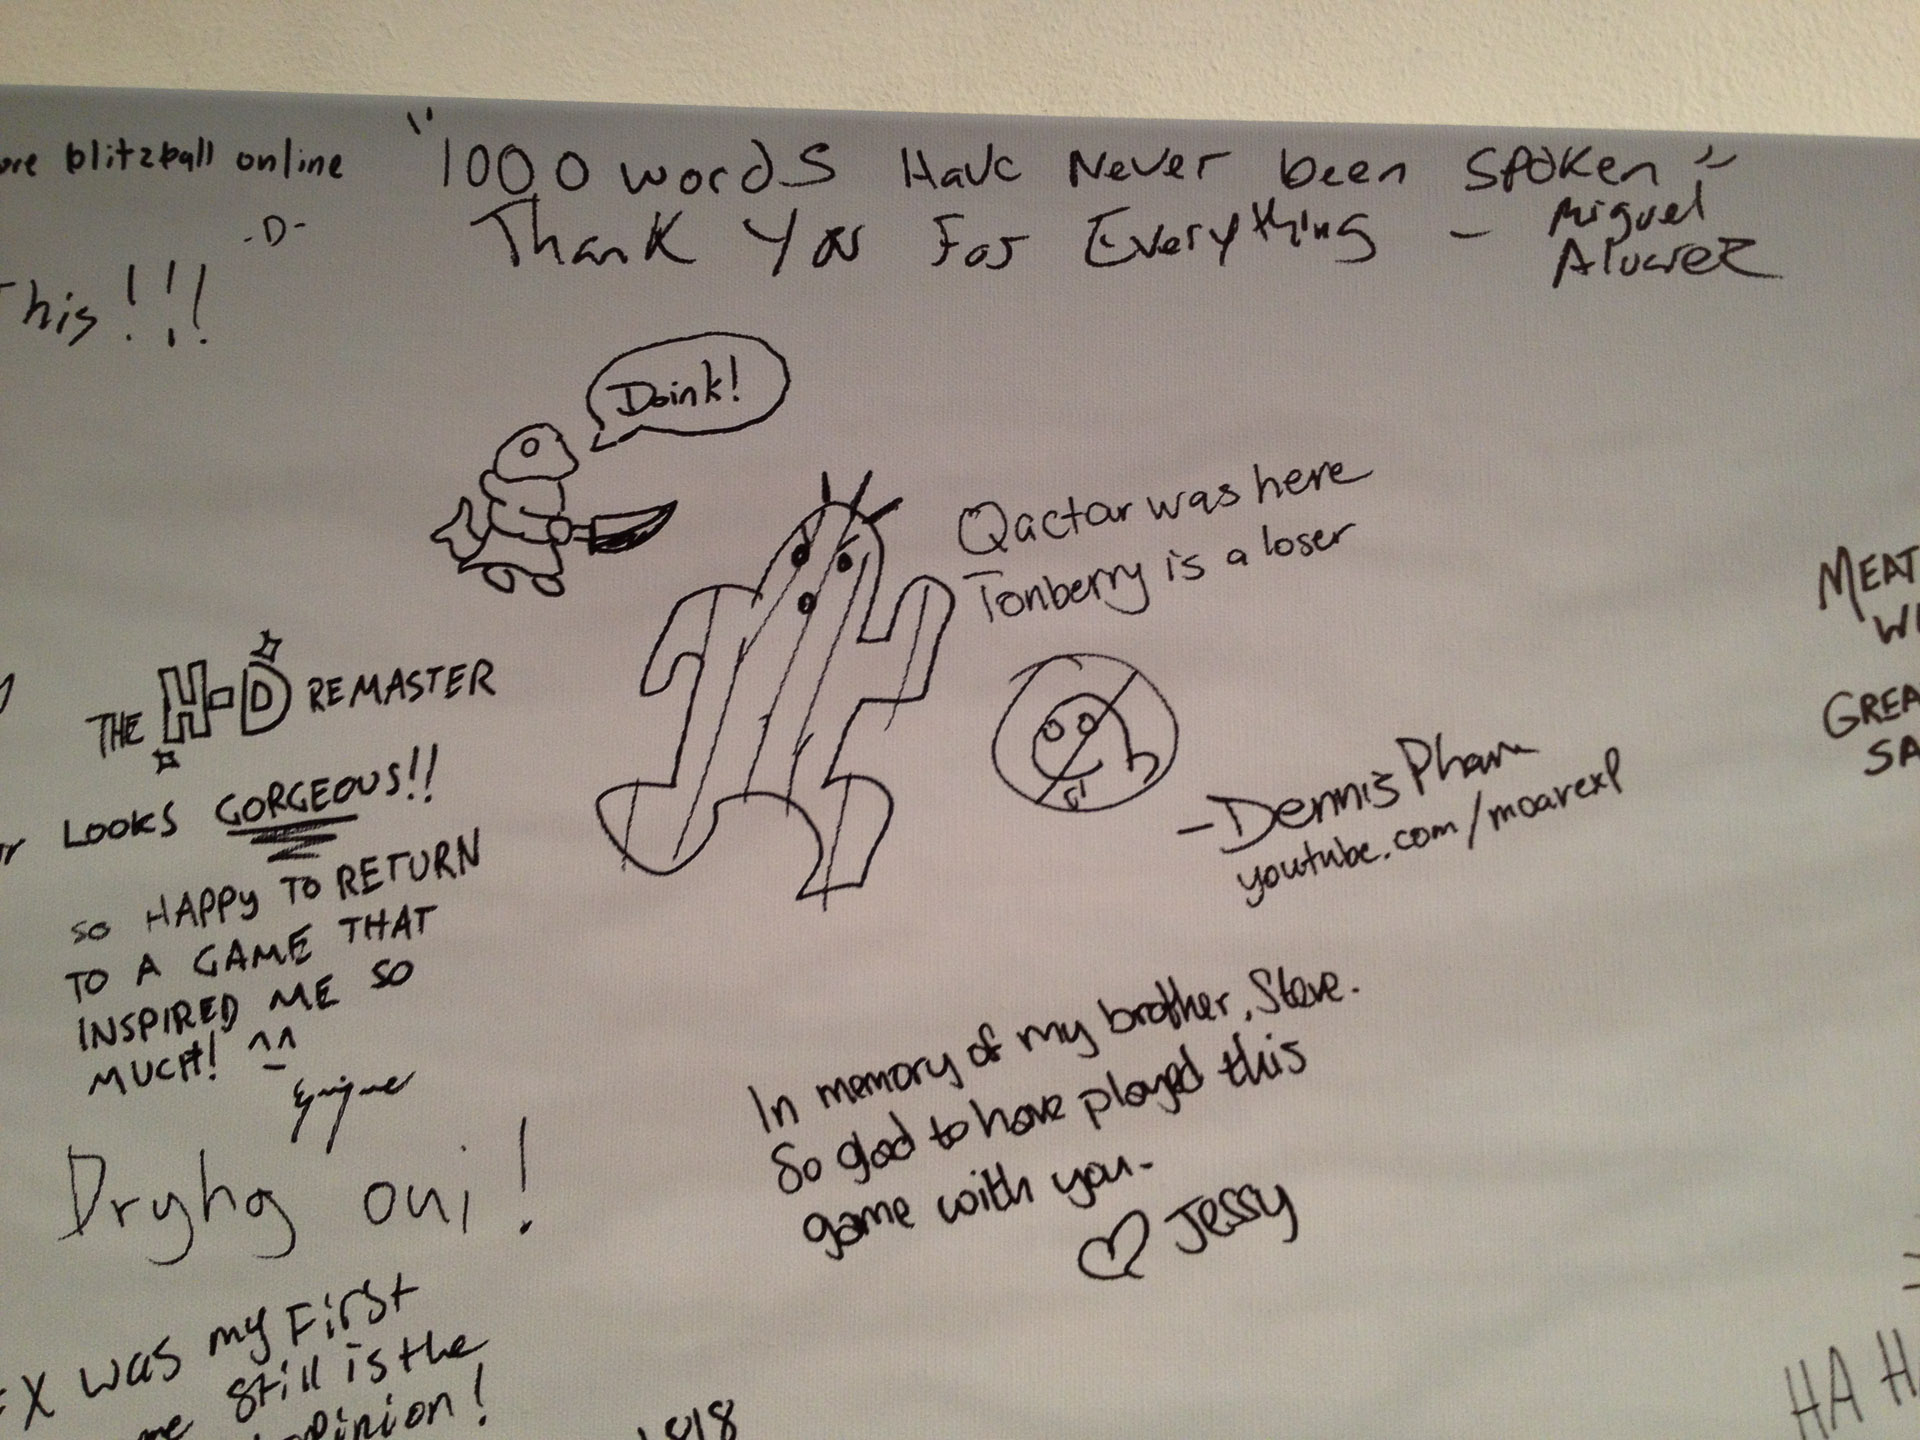 blitzball online
-D-
This!!!
"1000 words Have Never been Spoken"
Thank You For Everything - Miguel
Alvarez
Doink!
Qactar was here
Tonberry is a loser
- Dennis Pham
youtube.com/moarexp
THE H-D REMASTER
LOOKS GORGEOUS!!
SO HAPPY TO RETURN
TO A GAME THAT
INSPIRED ME SO
MUCH! ^_^
Dryhg oui!
X was my First
still is the
opinion!
In memory of my brother, Steve.
So glad to have played this
game with you.
♡ Jessy
MEAT
GREA
SA
HA H